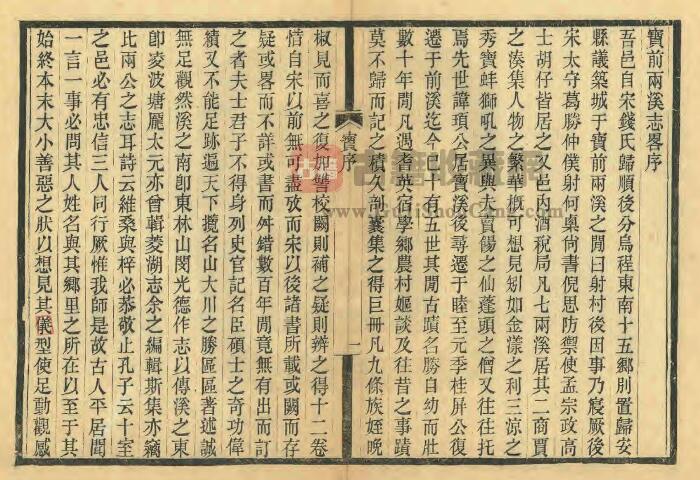 寶前兩溪志畧序
吾邑自宋錢氏歸順後分烏程東南十五鄉則置歸安
縣議築城于寶前兩溪之閒曰射村後因事乃寢厥後
宋太守葛勝仲僕射何㮚尙書倪思防禦使孟宗政高
士胡仔皆居之又邑內酒稅局凡七兩溪居其二商賈
之湊集人物之繁華槪可想見矧如金漾之利三涼之
秀寶蚌獅吼之異與夫賣餳之仙蓬頭之僧又往往托
焉先世諱瑣公居寶溪後尋遷于睦至元季桂屏公復
遷于前溪迄今已十有五世其閒古蹟名勝自幼而壯
數十年閒凡遇耆英宿學鄉農村嫗談及往昔之事蹟
莫不歸而記之積久剖囊集之得巨冊凡九條族姪晩
寶序
一
椒見而喜之復加讐校闕則補之疑則辨之得十二卷
惜自宋以前無可盡攷而宋以後諸書所載或闕而存
疑或畧而不詳或書而舛錯數百年閒竟無有出而訂
之者夫士君子不得身列史官記名臣碩士之奇功偉
績又不能足跡遍天下攬名山大川之勝區區著述誠
無足觀然溪之南卽東林山閔光德作志以傳溪之東
卽凌波塘龎太元亦曾輯菱湖志余之編輯斯集亦竊
比兩公之志耳詩云維桑與梓必恭敬止孔子云十室
之邑必有忠信三人同行厥惟我師是故古人平居聞
一言一事必問其人姓名與其鄉里之所在以至于其
始終本末大小善惡之狀以想見其儀型使足動觀感